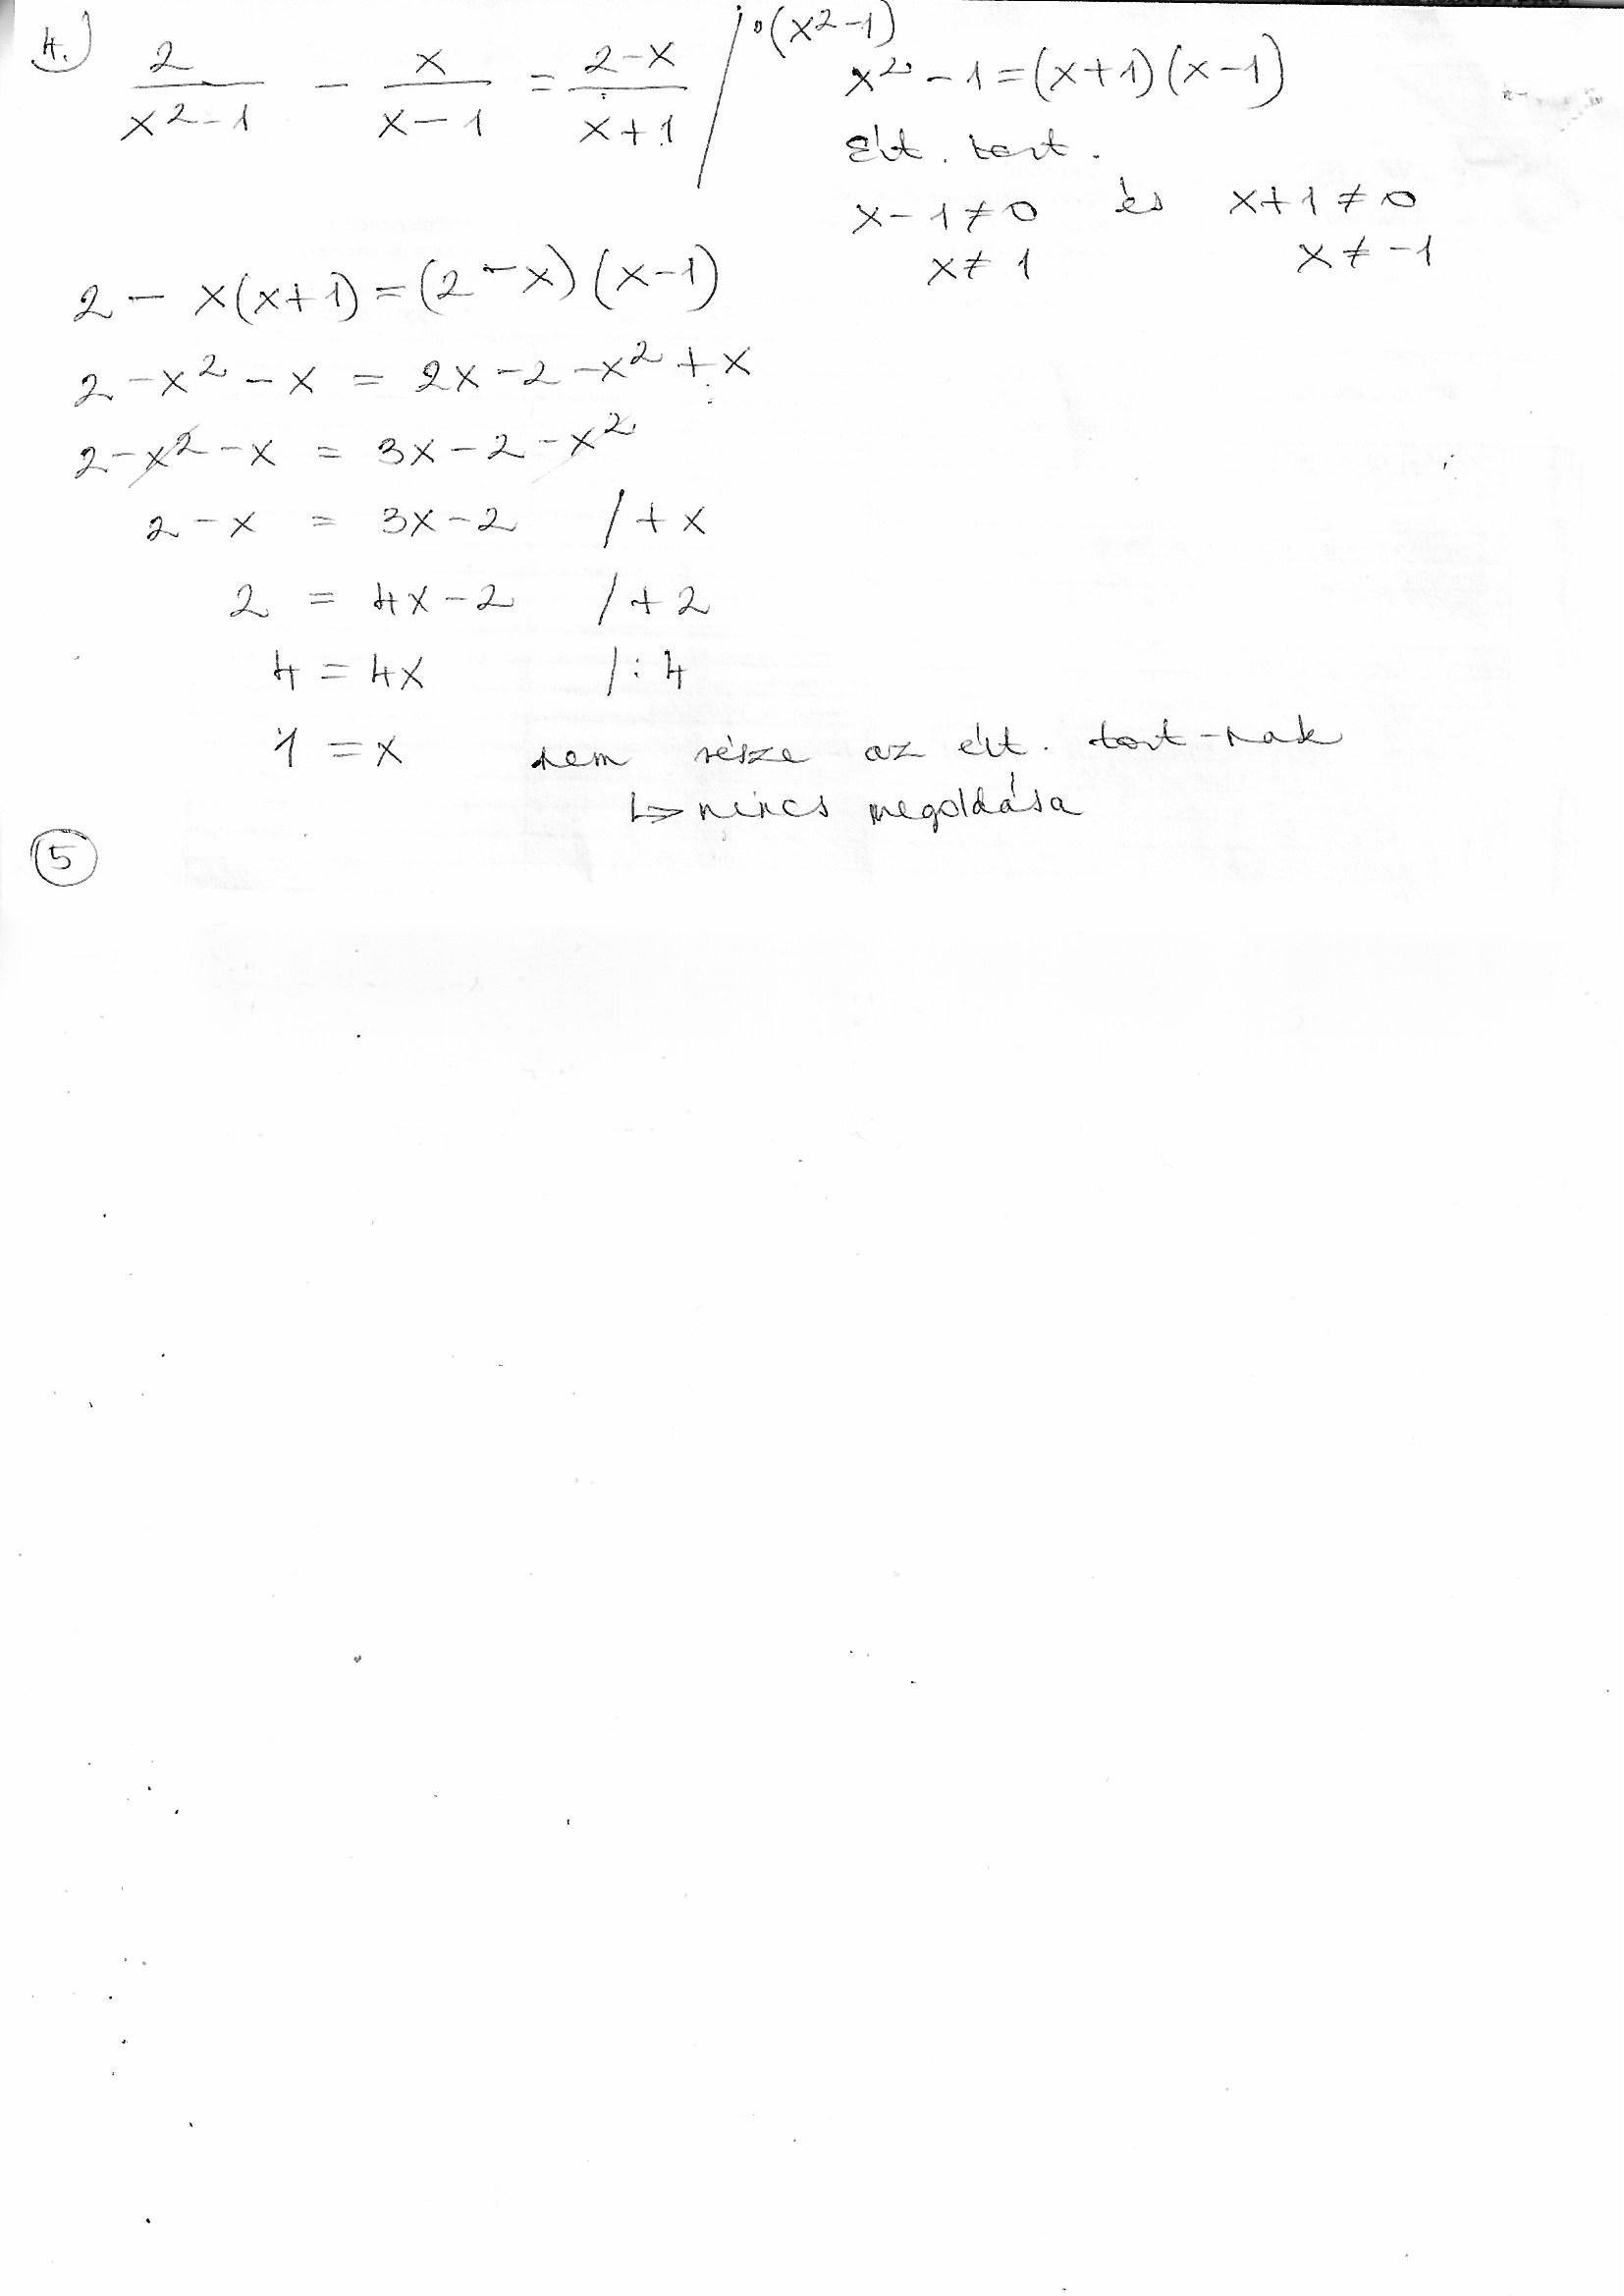 4.) 2/(x²-1) - x/(x-1) = (2-x)/(x+1) / ·(x²-1)
x²-1=(x+1)(x-1)
Ért. tart.
x-1≠0 és x+1≠0
x≠1 x≠-1
2-x(x+1)=(2-x)(x-1)
2-x²-x = 2x-2-x²+x
2-x²-x = 3x-2-x²
2-x = 3x-2 /+x
2 = 4x-2 /+2
4 = 4x /:4
1 = x nem része az ért. tart-nak
↳> nincs megoldása
5